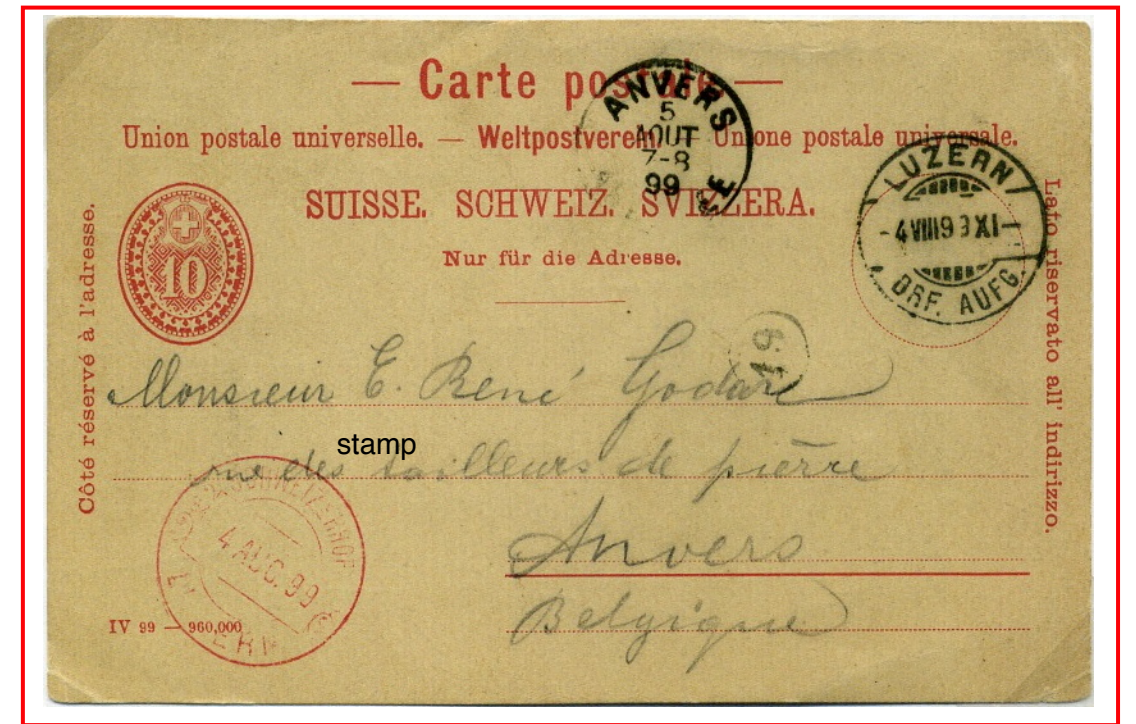 — Carte postale —
Union postale universelle. — Weltpostverein. — Unione postale universale.
SUISSE. SCHWEIZ. SVIZZERA.
Nur für die Adresse.
Côté réservé à l'adresse.
Lato riservato all' indirizzo.
10
ANVERS
5
AOUT
7-8
99
LUZERN
-4 VIII 99 XI-
BRF. AUFG.
19
Monsieur E. René Godare
stamp
rue des tailleurs de pierre
Anvers
Belgique
SCHWEIZERHOF
4 AUG. 99
IV 99 — 960,000